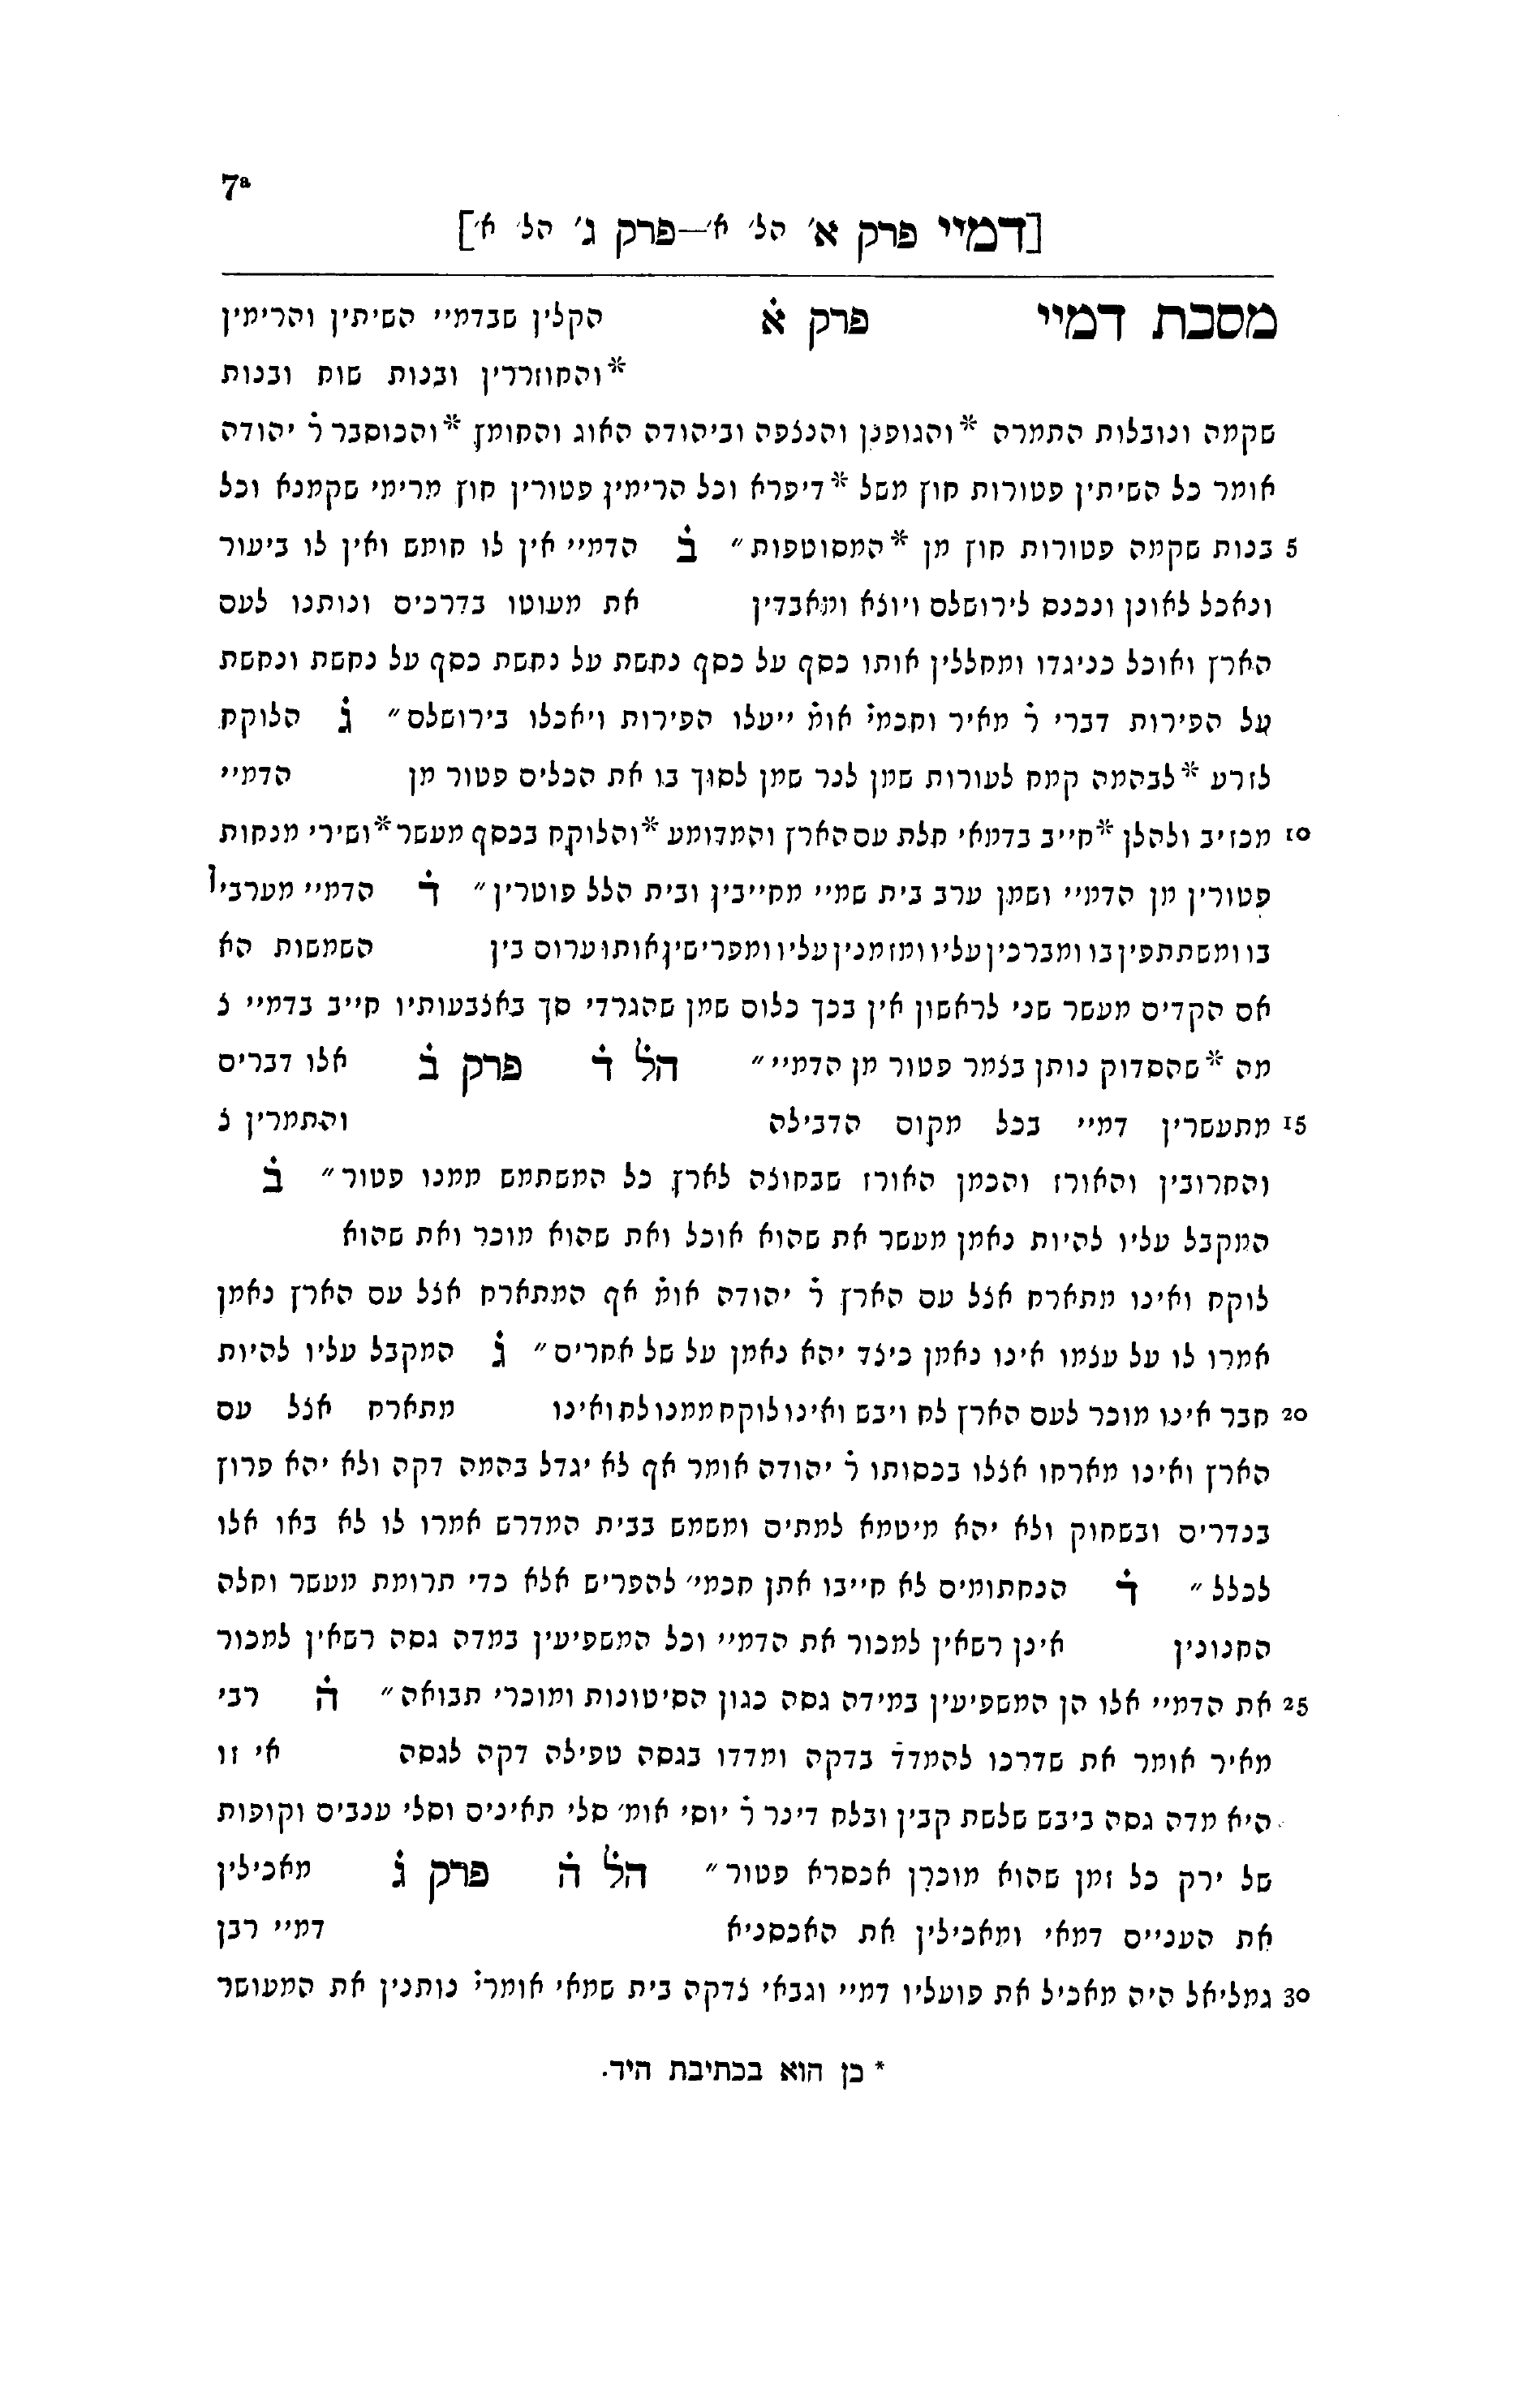 7ª
[דמיי פרק א׳ הל׳ א׳—פרק ג׳ הל׳ א׳]
מסכת דמיי פרק א̇ הקלין שבדמיי השיתין והרימין
*והחוזררין ובנות שוח ובנות
שקמה ונובלות התמרה *והגופנן והנצפה וביהודה האוג והחומץ *והכוסבר ר̇ יהודה
אומר כל השיתין פטורות חוץ משל *דיפרא וכל הרימין פטורין חוץ מרימי שקמנא וכל
5 בנות שקמה פטורות חוץ מן *המסוטפות״ ב̇ הדמיי אין לו חומש ואין לו ביעור
ונאכל לאונן ונכנס לירושלם ויוצא ומאבדין את מעוטו בדרכים ונותנו לעם
הארץ ואוכל כניגדו ומחללין אותו כסף על כסף נחשת על נחשת כסף על נחשת ונחשת
על הפירות דברי ר̇ מאיר וחכמי̇ אומ̇ ייעלו הפירות ויאכלו בירושלם״ ג̇ הלוקח
לזרע *לבהמה קמח לעורות שמן לנר שמן לסוך בו את הכלים פטור מן הדמיי
10 מכזיב ולהלן *חייב בדמאי חלת עם הארץ והמדומע *והלוקח בכסף מעשר *ושירי מנחות
פטורין מן הדמיי ושמן ערב בית שמיי מחייבין ובית הלל פוטרין״ ד̇ הדמיי מערבי[ן]
בו ומשתתפין בו ומברכין עליו ומזמנין עליו ומפרישין אותו ערום בין השמשות הא
אם הקדים מעשר שני לראשון אין בכך כלום שמן שהגרדי סך באצבעותיו חייב בדמיי צ
מה *שהסדוק נותן בצמר פטור מן הדמיי״ הל̇ ד̇ פרק ב̇ אלו דברים
15 מתעשרין דמיי בכל מקום הדבילה והתמרין צ
והחרובין והאורז והכמן האורז שבחוצה לארץ כל המשתמש ממנו פטור״ ב̇
המקבל עליו להיות נאמן מעשר את שהוא אוכל ואת שהוא מוכר ואת שהוא
לוקח ואינו מתארח אצל עם הארץ ר̇ יהודה אומ̇ אף המתארח אצל עם הארץ נאמן
אמרו לו על עצמו אינו נאמן כיצד יהא נאמן על של אחרים״ ג̇ המקבל עליו להיות
20 חבר אינו מוכר לעם הארץ לח ויבש ואינו לוקח ממנו לח ואינו מתארח אצל עם
הארץ ואינו מארחו אצלו בכסותו ר̇ יהודה אומר אף לא יגדל בהמה דקה ולא יהא פרוץ
בנדרים ובשחוק ולא יהא מיטמא למתים ומשמש בבית המדרש אמרו לו לא באו אלו
לכלל״ ד̇ הנחתומים לא חייבו אתן חכמי׳ להפריש אלא כדי תרומת מעשר וחלה
החנונין אינן רשאין למכור את הדמיי וכל המשפיעין במדה גסה רשאין למכור
25 את הדמיי אלו הן המשפיעין במידה גסה כגון הסיטונות ומוכרי תבואה״ ה̇ רבי
מאיר אומר את שדרכו להמדד בדקה ומדדו בגסה טפילה דקה לגסה אי זו
היא מדה גסה ביבש שלשת קבין ובלח דינר ר̇ יוסי אומ׳ סלי תאינים וסלי ענבים וקופות
של ירק כל זמן שהוא מוכרן אכסרא פטור״ הל̇ ה̇ פרק ג̇ מאכילין
את העניים דמאי ומאכילין את האכסניא דמיי רבן
30 גמליאל היה מאכיל את פועליו דמיי וגבאי צדקה בית שמאי אומרי̇ נותנין את המעושר
* כן הוא בכתיבת היד.